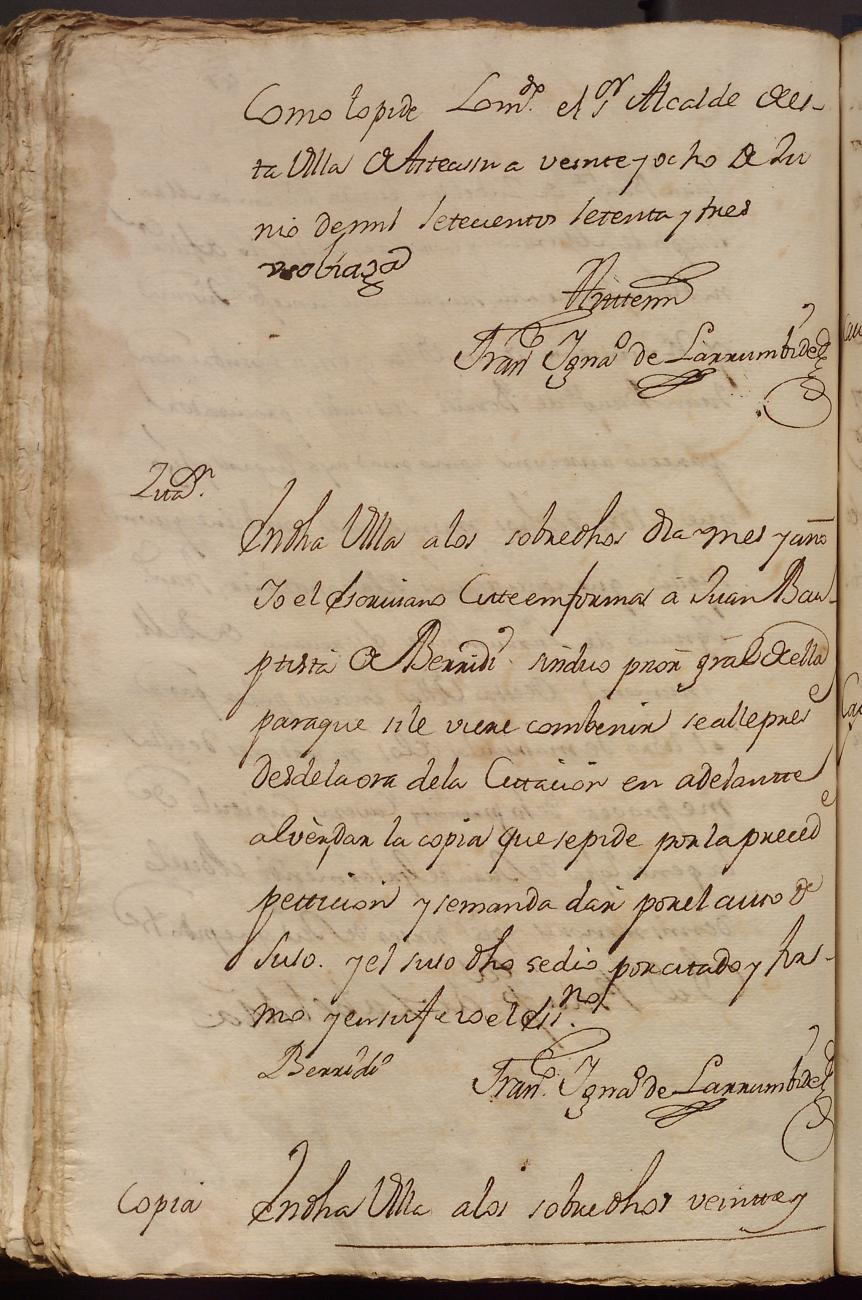 Como lo pide Lomdo. el Sor Alcalde de es-
ta Villa de Arteasu a veinte y ocho de Ju
nio de mil setecientos setenta y tres
Antemi
Frano. Ignao de Larrumbide
Zitaon.
En dha Villa a los sobredhos dia mes y año
Yo el escriuano Cite en forma a Juan Bau-
ptista de Berridi sindico pror gral de ella
para que si le viene combenir se alle preste
desde la ora de la Cittacion en adelantte
al verdar la copia que se pide por la precede
petticion y se manda dar por el autto de
suso. y el suso dho se dio por citado y fir-
mo y en su fe io el essno.
Berridi
Frano. Ignao de Larrumbide
Copia En dha Villa a los sobredhos veintte y